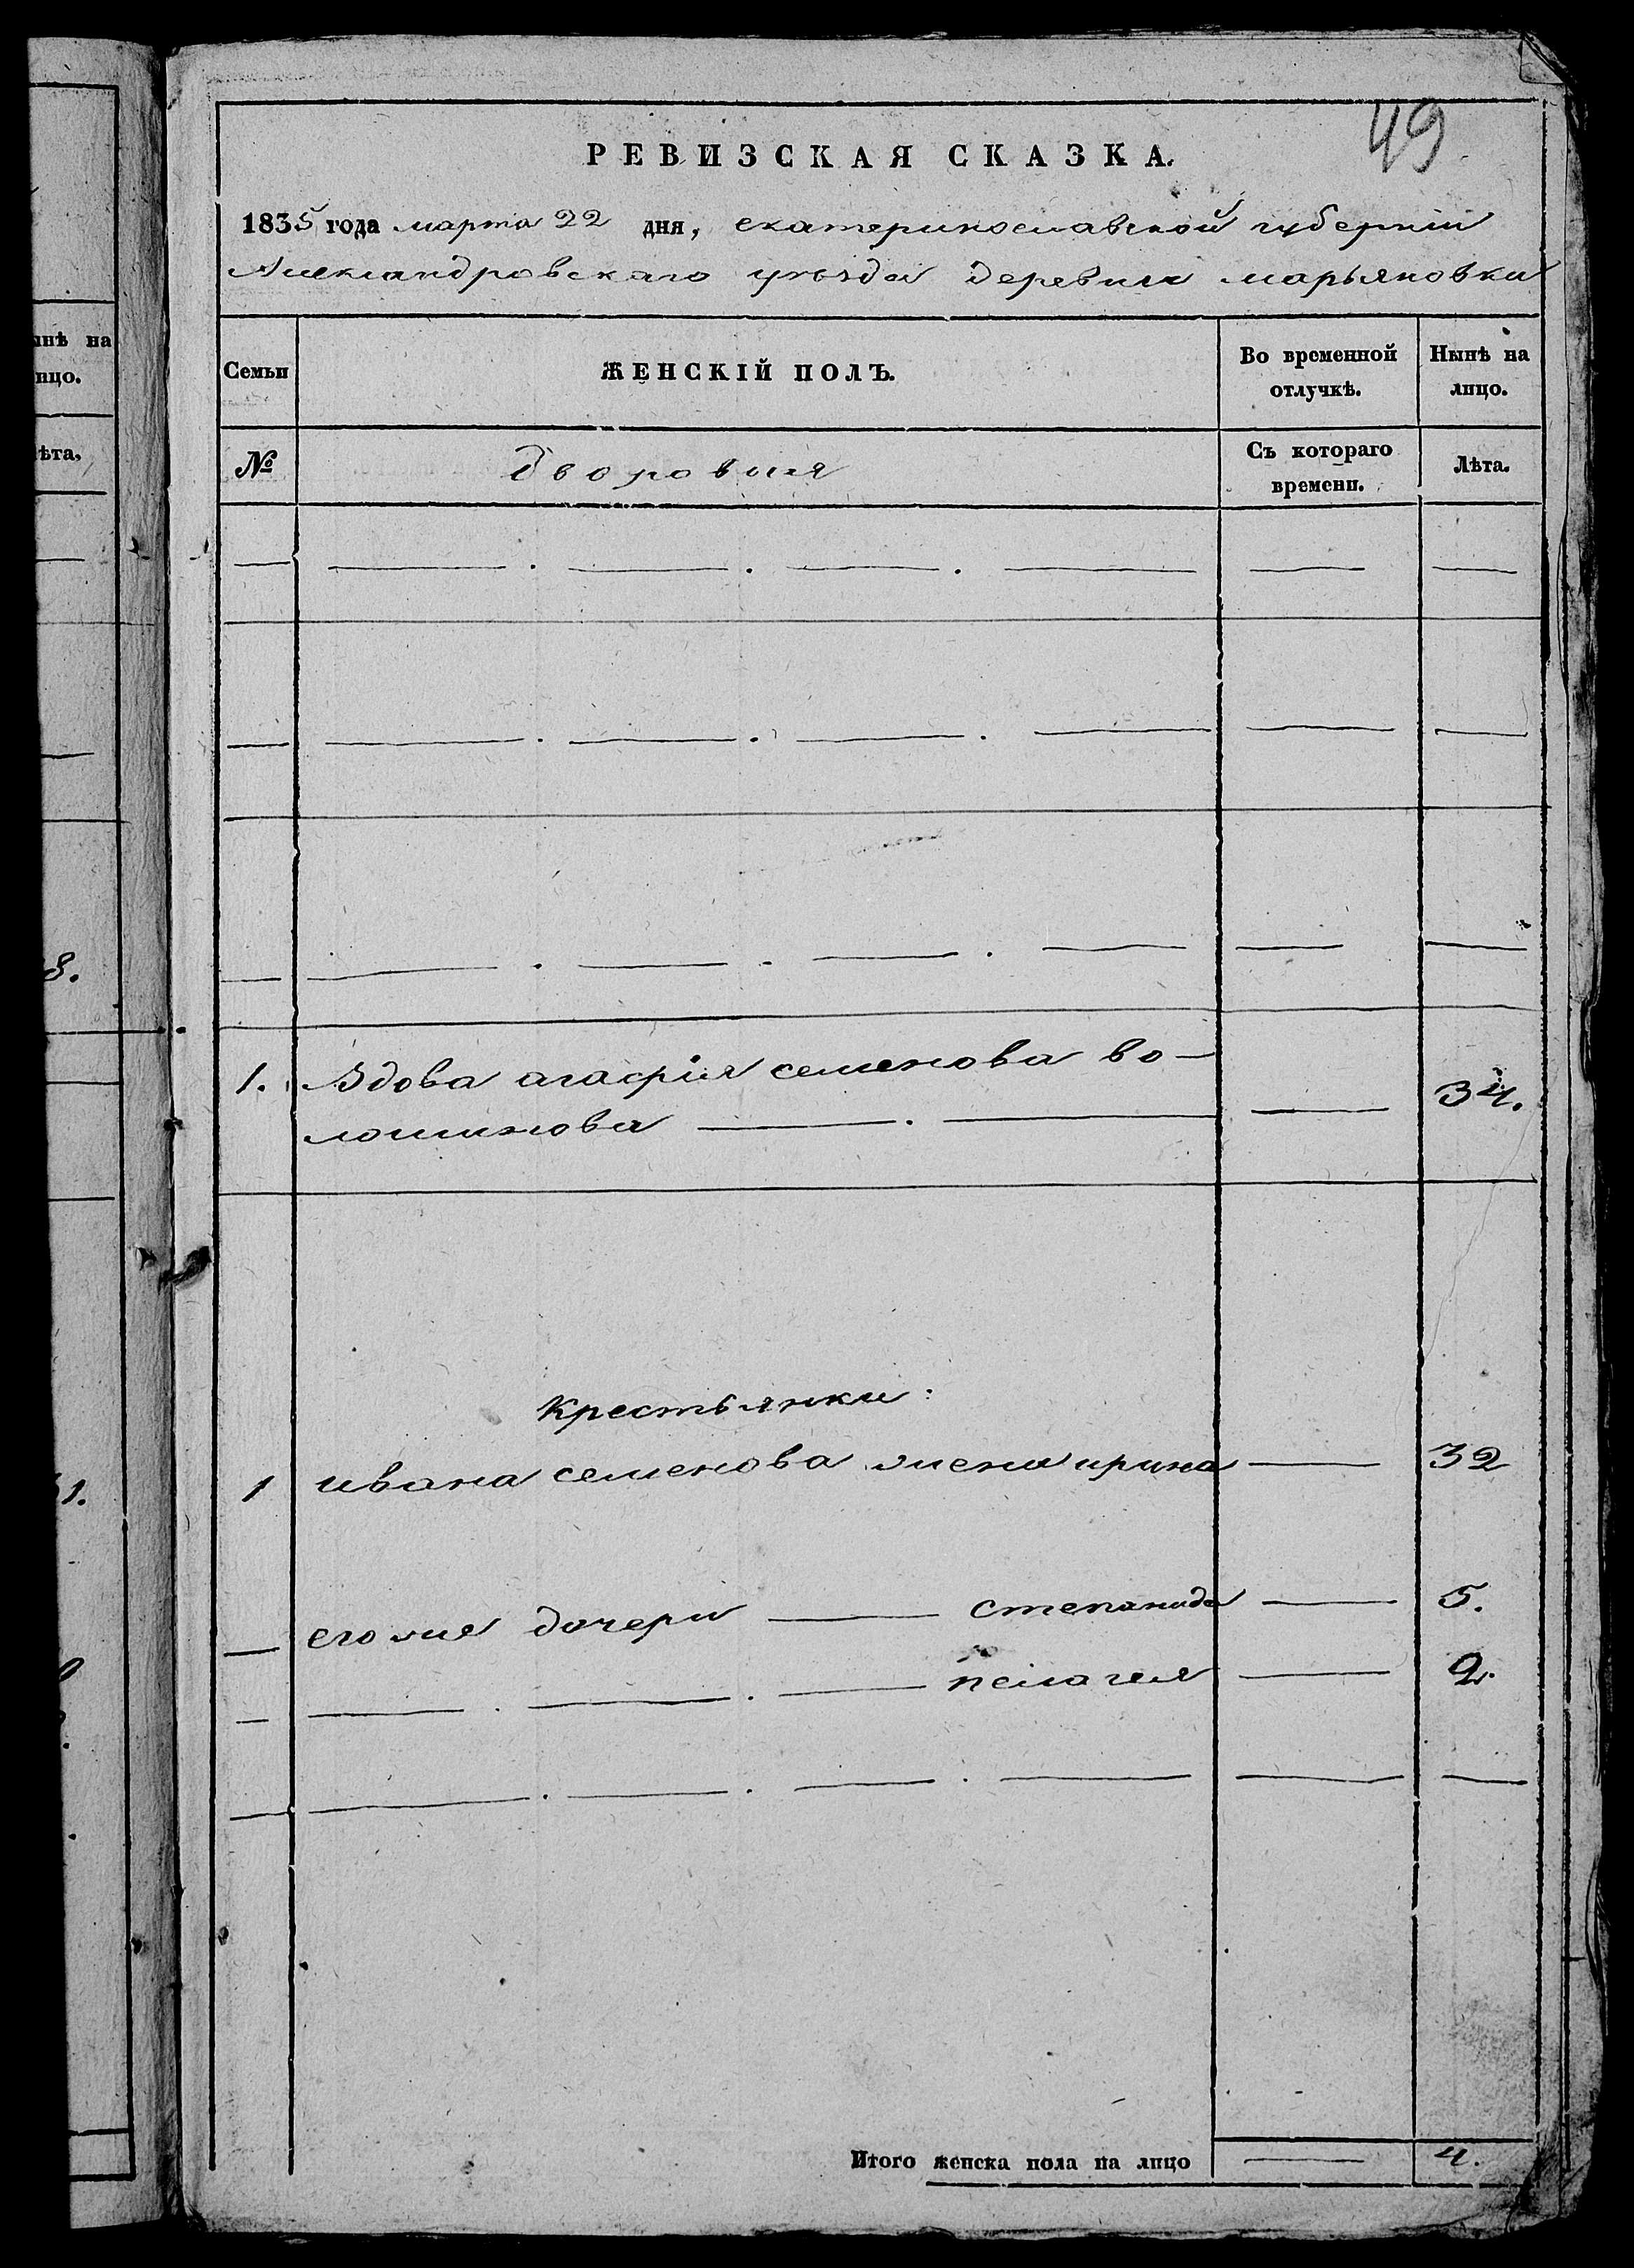 49
РЕВИЗСКАЯ СКАЗКА.
1835 года марта 22 дня, екатеринославской губернiи
Александровскаго уѣзда деревни марьяновки
Семьи
ЖЕНСКIЙ ПОЛЪ.
Во временной отлучкѣ.
Нынѣ на лицо.
№
дворовыя
Съ котораго времени.
Лѣта.
1. Вдова агафiя семенова во-
лошинова — . — — 34.
Крестьянки:
1 ивана семенова жена ирина — 32
его же дочери — степанида — 5.
— . — . — пелагея — 2.
Итого женска пола на лицо — 4.
ынѣ на
ицо.
ѣта,
8.
1.